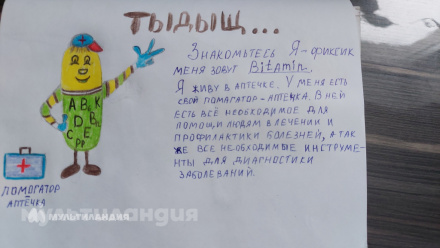 ТЫДЫЩ...
ЗНАКОМЬТЕСЬ Я-ФИКСИК
МЕНЯ ЗОВУТ Bitamin.
Я ЖИВУ В АПТЕЧКЕ. У МЕНЯ ЕСТЬ
СВОЙ ПОМАГАТОР-АПТЕЧКА. В НЕЙ
ЕСТЬ ВСЁ НЕОБХОДИМОЕ ДЛЯ
ПОМОЩИ ЛЮДЯМ В ЛЕЧЕНИИ И
ПРОФИЛАКТИКИ БОЛЕЗНЕЙ, А ТАК
ЖЕ ВСЕ НЕОБХОДИМЫЕ ИНСТРУМЕ-
НТЫ ДЛЯ ДИАГНОСТИКИ
ЗАБОЛЕВАНИЙ.
A B K
D B
C E
PP
ПОМОГАТОР
АПТЕЧКА
МУЛЬТИЛАНДИЯ
мультиландия